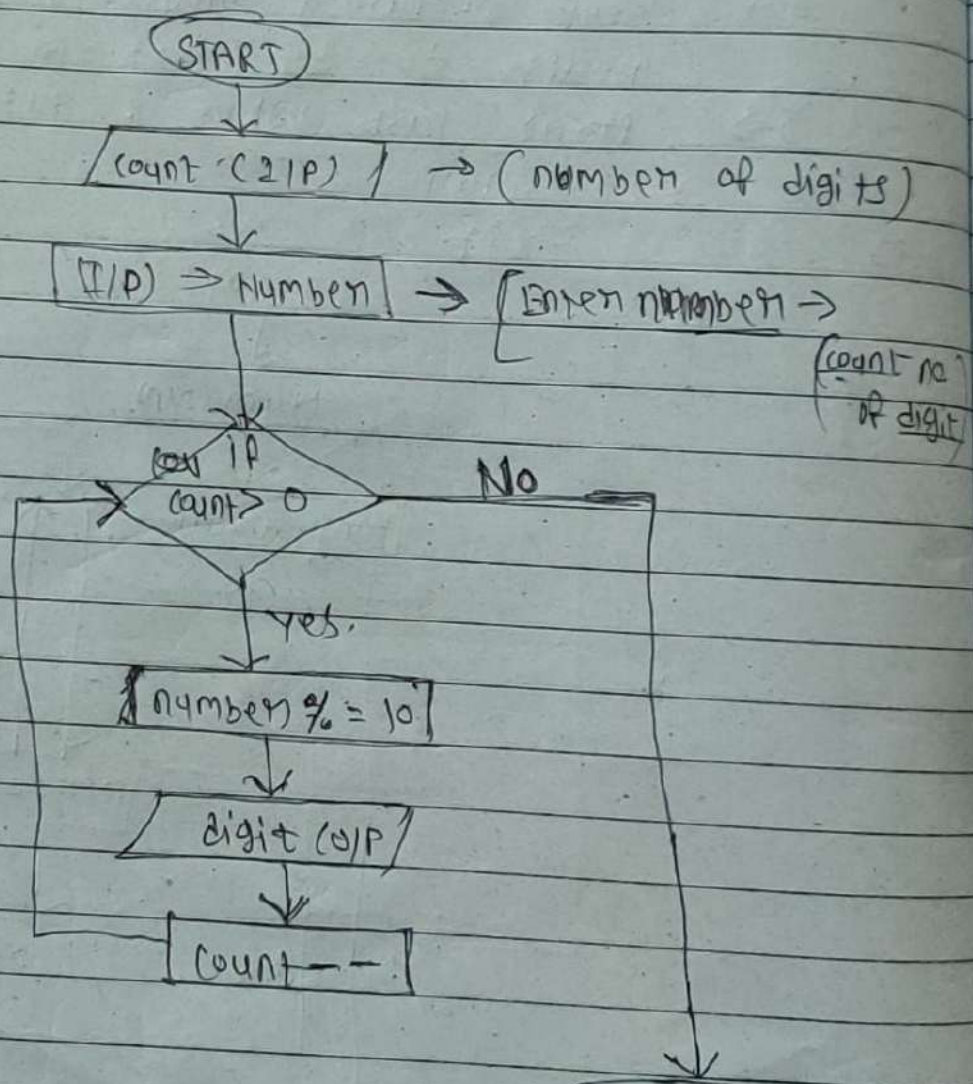 START
count (I/P) → (number of digits)
(I/P) → Number → [Enter number →
(count no
of digit)
IF
count > 0
No
yes.
number %= 10
digit (O/P)
count--